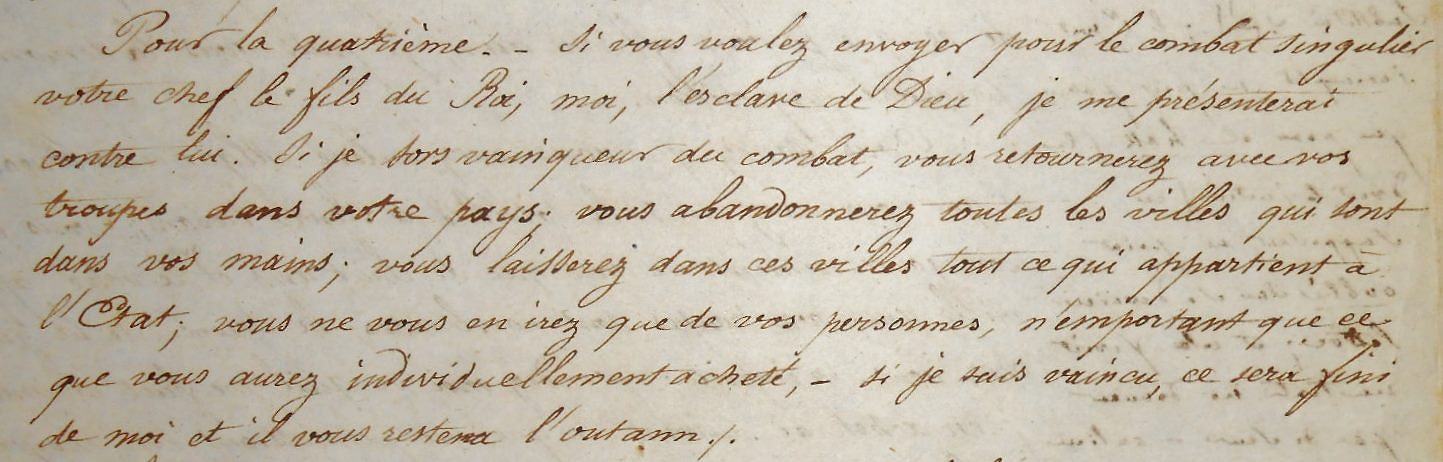 Pour la quatrième. - Si vous voulez envoyer pour le combat singulier
votre chef le fils du Roi, moi, l'esclave de Dieu, je me présenterai
contre lui. Si je sors vainqueur du combat, vous retournerez avec vos
troupes dans votre pays; vous abandonnerez toutes les villes qui sont
dans vos mains; vous laisserez dans ces villes tout ce qui appartient à
l'Etat; vous ne vous en irez que de vos personnes, n'emportant que ce
que vous aurez individuellement acheté, - si je suis vaincu, ce sera fini
de moi et il vous restera l'outann./.